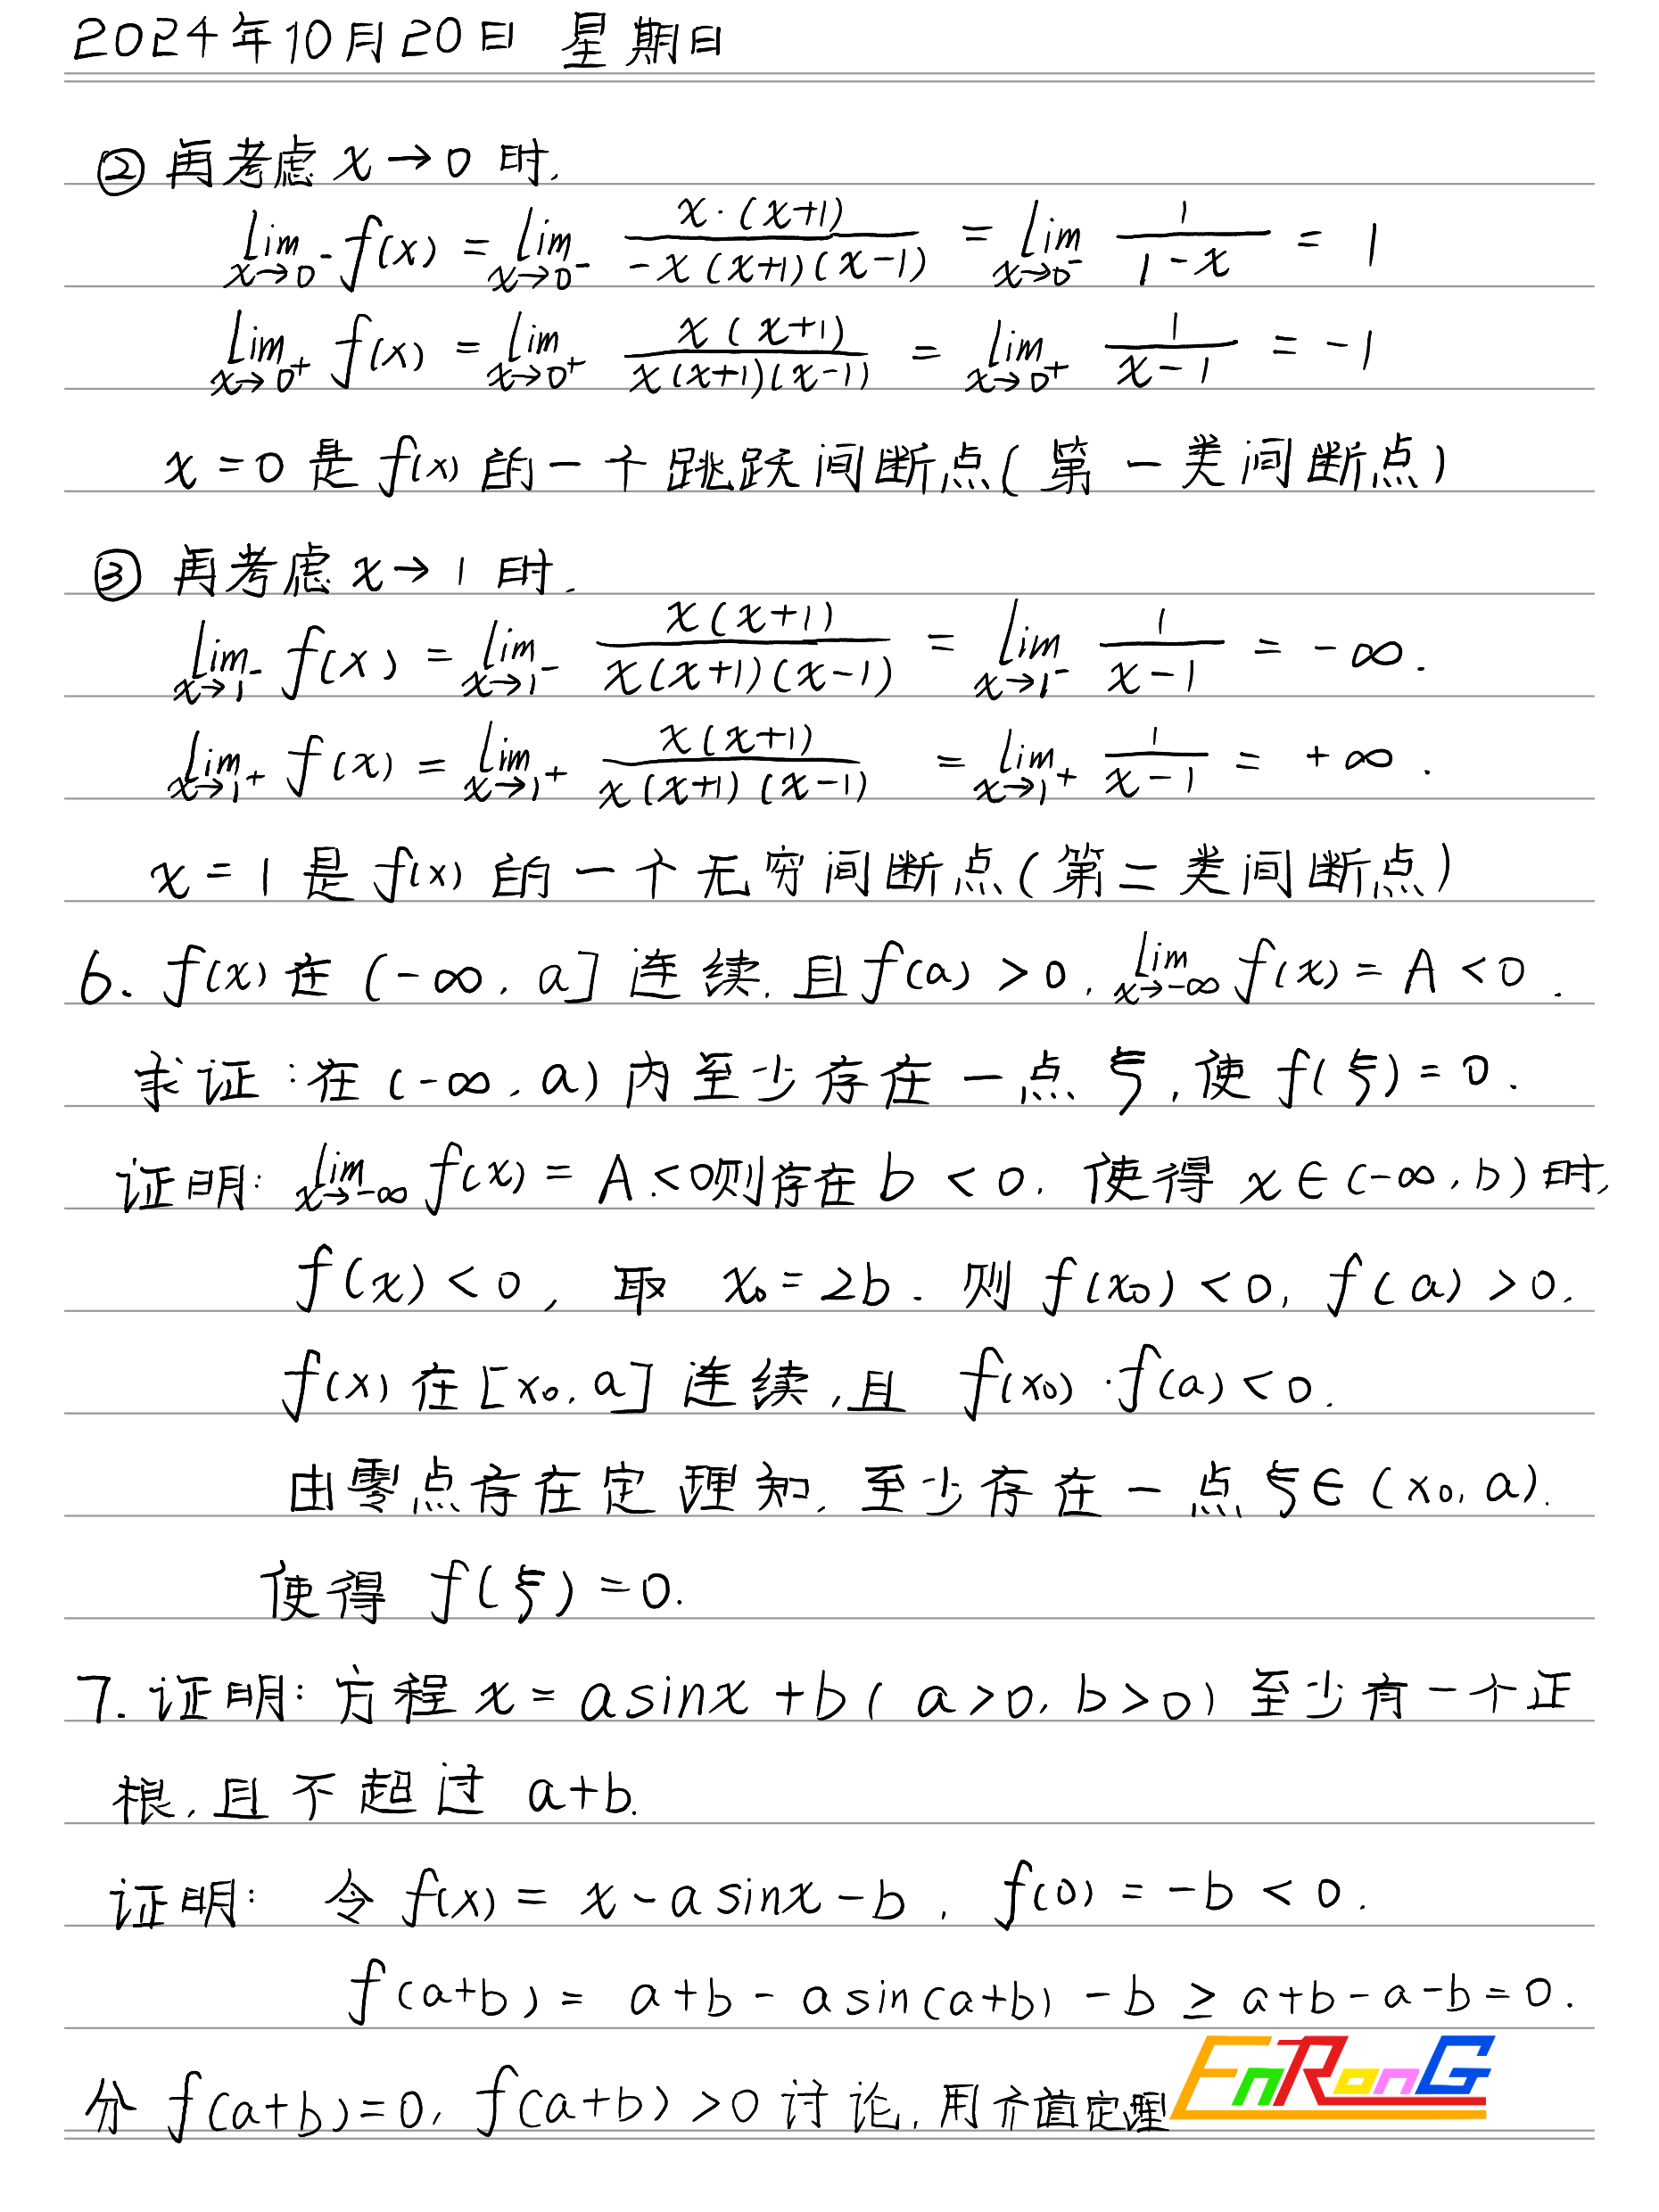 2024年10月20日 星期日
② 再考虑 x→0 时.
lim x→0⁻ f(x) = lim x→0⁻ x·(x+1) / -x(x+1)(x-1) = lim x→0⁻ 1/(1-x) = 1
lim x→0⁺ f(x) = lim x→0⁺ x(x+1) / x(x+1)(x-1) = lim x→0⁺ 1/(x-1) = -1
x=0 是 f(x) 的一个跳跃间断点(第一类间断点)
③ 再考虑 x→1 时.
lim x→1⁻ f(x) = lim x→1⁻ x(x+1) / x(x+1)(x-1) = lim x→1⁻ 1/(x-1) = -∞.
lim x→1⁺ f(x) = lim x→1⁺ x(x+1) / x(x+1)(x-1) = lim x→1⁺ 1/(x-1) = +∞.
x=1 是 f(x) 的一个无穷间断点(第二类间断点)
6. f(x) 在 (-∞, a] 连续, 且 f(a)>0, lim x→-∞ f(x) = A<0.
求证:在 (-∞, a) 内至少存在一点 ξ, 使 f(ξ)=0.
证明: lim x→-∞ f(x) = A<0则存在 b<0. 使得 x∈(-∞, b) 时,
f(x)<0, 取 x₀=2b. 则 f(x₀)<0, f(a)>0.
f(x) 在 [x₀, a] 连续, 且 f(x₀)·f(a)<0.
由零点存在定理知, 至少存在一点 ξ∈(x₀, a).
使得 f(ξ)=0.
7. 证明: 方程 x = asinx + b (a>0, b>0) 至少有一个正
根, 且不超过 a+b.
证明: 令 f(x) = x - asinx - b, f(0) = -b < 0.
f(a+b) = a+b - asin(a+b) - b ≥ a+b-a-b=0.
分 f(a+b)=0, f(a+b)>0 讨论, 用介值定理
EnRonG